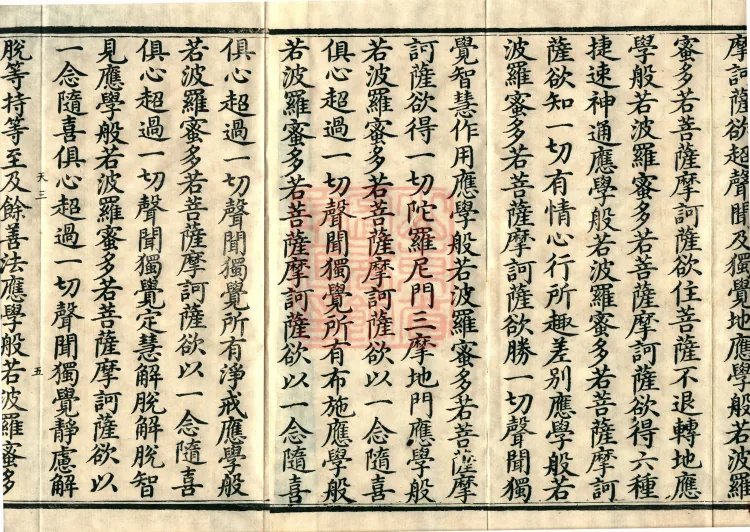 摩訶薩欲超聲聞及獨覺地應學般若波羅
蜜多若菩薩摩訶薩欲住菩薩不退轉地應
學般若波羅蜜多若菩薩摩訶薩欲得六種
捷速神通應學般若波羅蜜多若菩薩摩訶
薩欲知一切有情心行所趣差別應學般若
波羅蜜多若菩薩摩訶薩欲勝一切聲聞獨
覺智慧作用應學般若波羅蜜多若菩薩摩
訶薩欲得一切陀羅尼門三摩地門應學般
若波羅蜜多若菩薩摩訶薩欲以一念隨喜
俱心超過一切聲聞獨覺所有布施應學般
若波羅蜜多若菩薩摩訶薩欲以一念隨喜
俱心超過一切聲聞獨覺所有淨戒應學般
若波羅蜜多若菩薩摩訶薩欲以一念隨喜
俱心超過一切聲聞獨覺定慧解脫解脫智
見應學般若波羅蜜多若菩薩摩訶薩欲以
一念隨喜俱心超過一切聲聞獨覺靜慮解
天三 五
脫等持等至及餘善法應學般若波羅蜜多